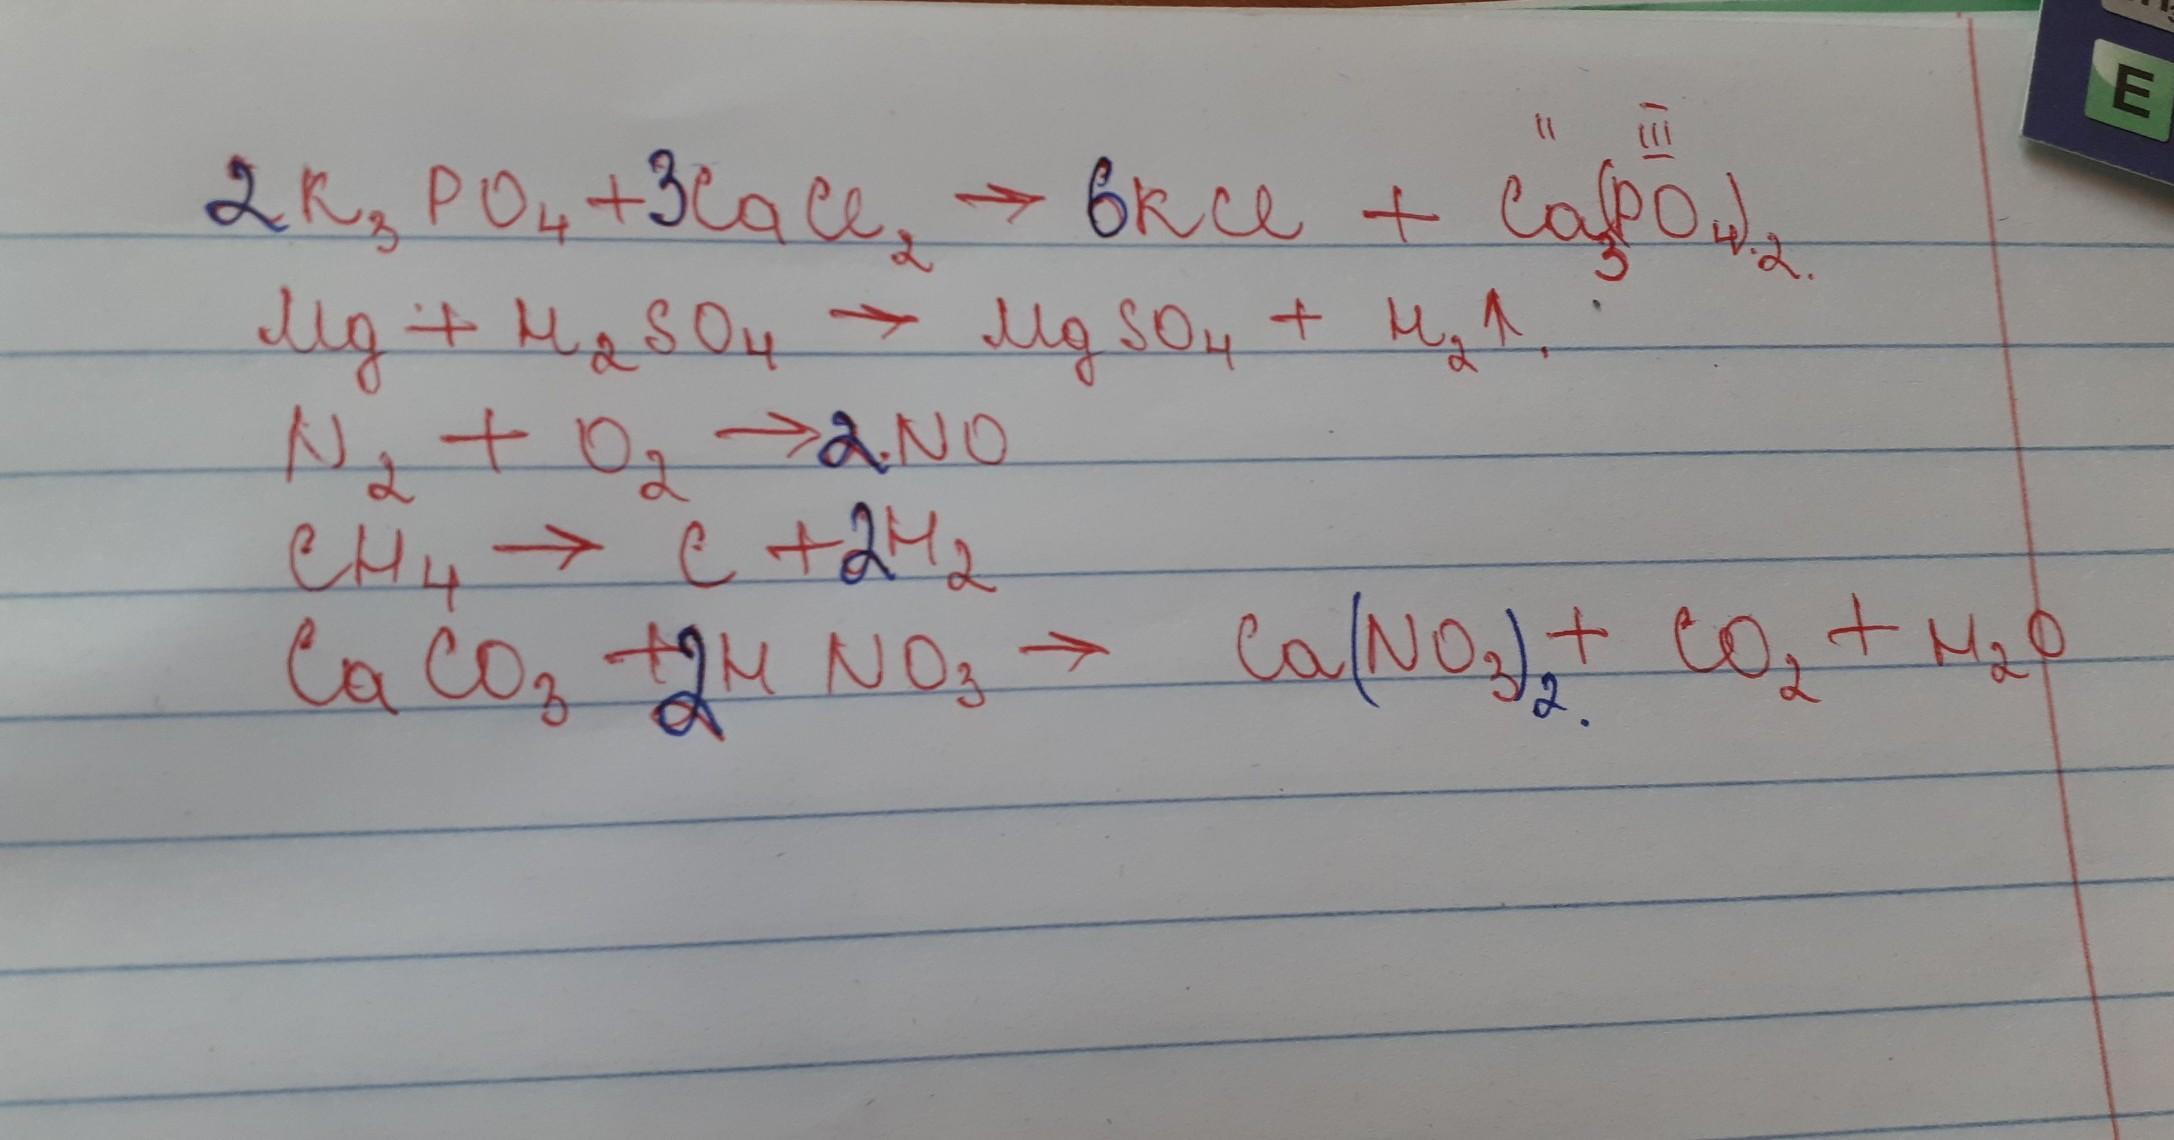 E
II III
2K₃PO₄ + 3CaCl₂ → 6KCl + Ca₃(PO₄)₂.
Mg + H₂SO₄ → MgSO₄ + H₂↑.
N₂ + O₂ → 2NO
CH₄ → C + 2H₂
CaCO₃ + 2HNO₃ → Ca(NO₃)₂ + CO₂ + H₂O